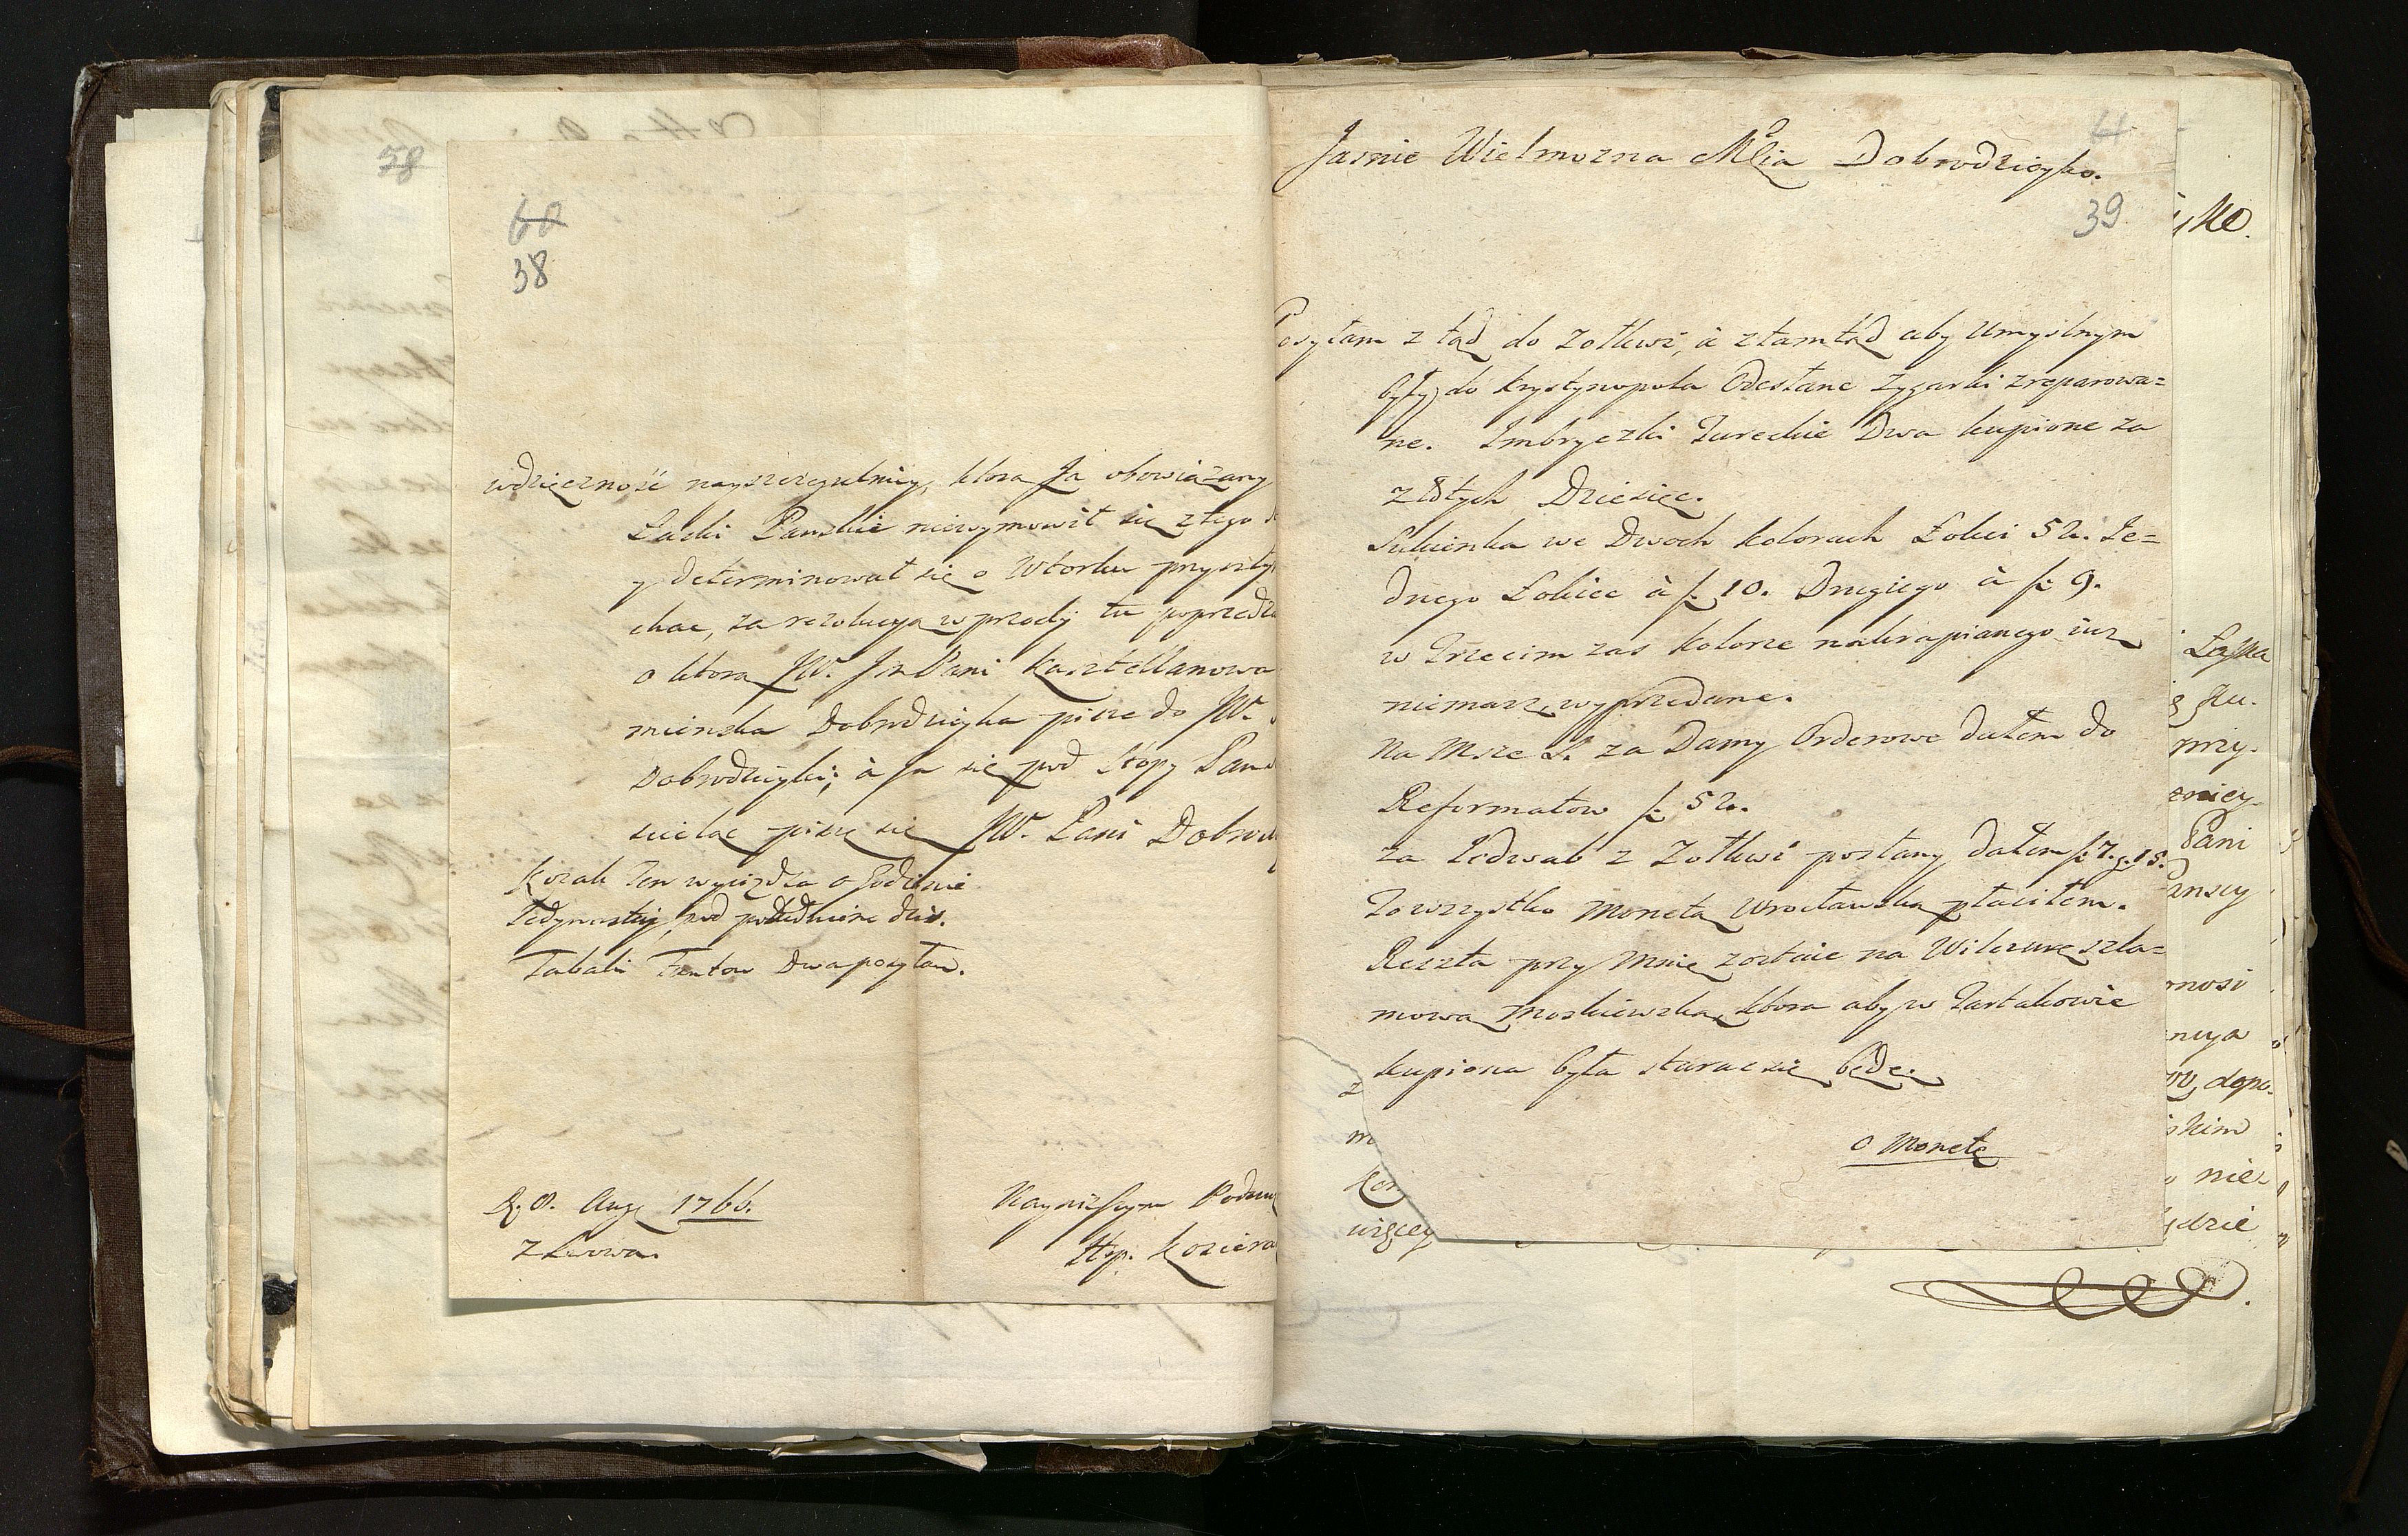 58
60
38
wdzięczność nayszczegulniey, ktora Ja obowiązany
Łaski Panskie niewymowił się z tego
y determinował się o Wtorku przyszły
chac, za rezolucyą wprzody tu poprzedza
o ktorą JW. Jm Pani Kasztellanowa
minska Dobrodzieyka pisze do JW.
Dobrodzieyki; à Ja się pod stopy Pans
scieląc piszę się JW. Pani Dobrod
Kozak Ten wyiezdza o Godzinie
Jedynastey, pod południe dziś.
Tabaki Funtow Dwa posyłam.
D. 8. Aug 1766.
z Lwowa.
Nayniższym Podnu
Stp. Koziera
41
Jasnie Wielmozna Mcia Dobrodzieyko.
39
Posyłam z tąd do Zołkwi, à ztamtąd aby Umyslnym
były do Krystynopola Odesłane Zygarki zreparowa=
ne. Imbryczki Tureckie Dwa kupione za
złotych Dziesięc.
Sukienka we Dwoch kolorach Łokci 52. Je=
dnego Łokiec à f. 10. Drugiego à f. 9.
w Trzecim zas kolorze nakrapianego iuz
niemasz, wyprzedane.
Na Msze S. za Damy Orderowe dałem do
Reformatow f. 52.
za Jedwab z Zołkwi posłany dałem f. 7. g. 15.
To wszystko Monetą Wrocławską płaciłem.
Reszta przy Mnie zostaie na Wilczurę szla=
mową Moskiewską, ktora aby w Tartakowie
kupiona była starac się będę.
O Monetę
yko.
Łaska
przy-
zniey-
Pani
anscy
mosi
encya
dopo-
skim
nie-
ędzie
z
m
kon
więcey